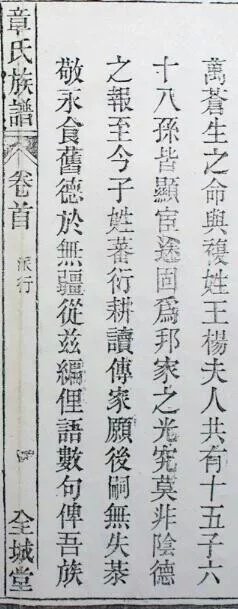 萬蒼生之命與複姓王楊夫人共有十五子六
十八孫皆顯宦途固爲邦家之光究莫非陰德
之報至今子姓蕃衍耕讀傳家願後嗣無失恭
敬永食舊德於無疆從兹編俚語數句俾吾族
章氏族譜 卷首 派行 全城堂